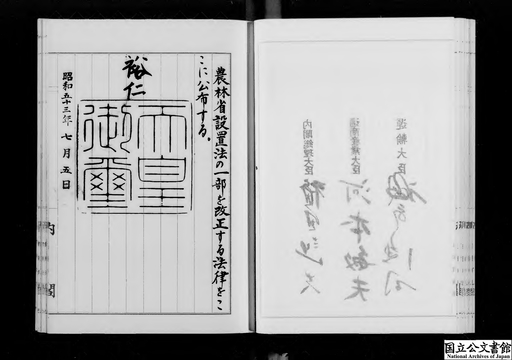 農林省設置法の一部を改正する法律をこ
こに公布する。
裕仁
天皇
御璽
昭和五十三年七月五日
内閣
運輸大臣
通商産業大臣
河本敏夫
内閣総理大臣
福田赳夫
国立公文書館
National Archives of Japan